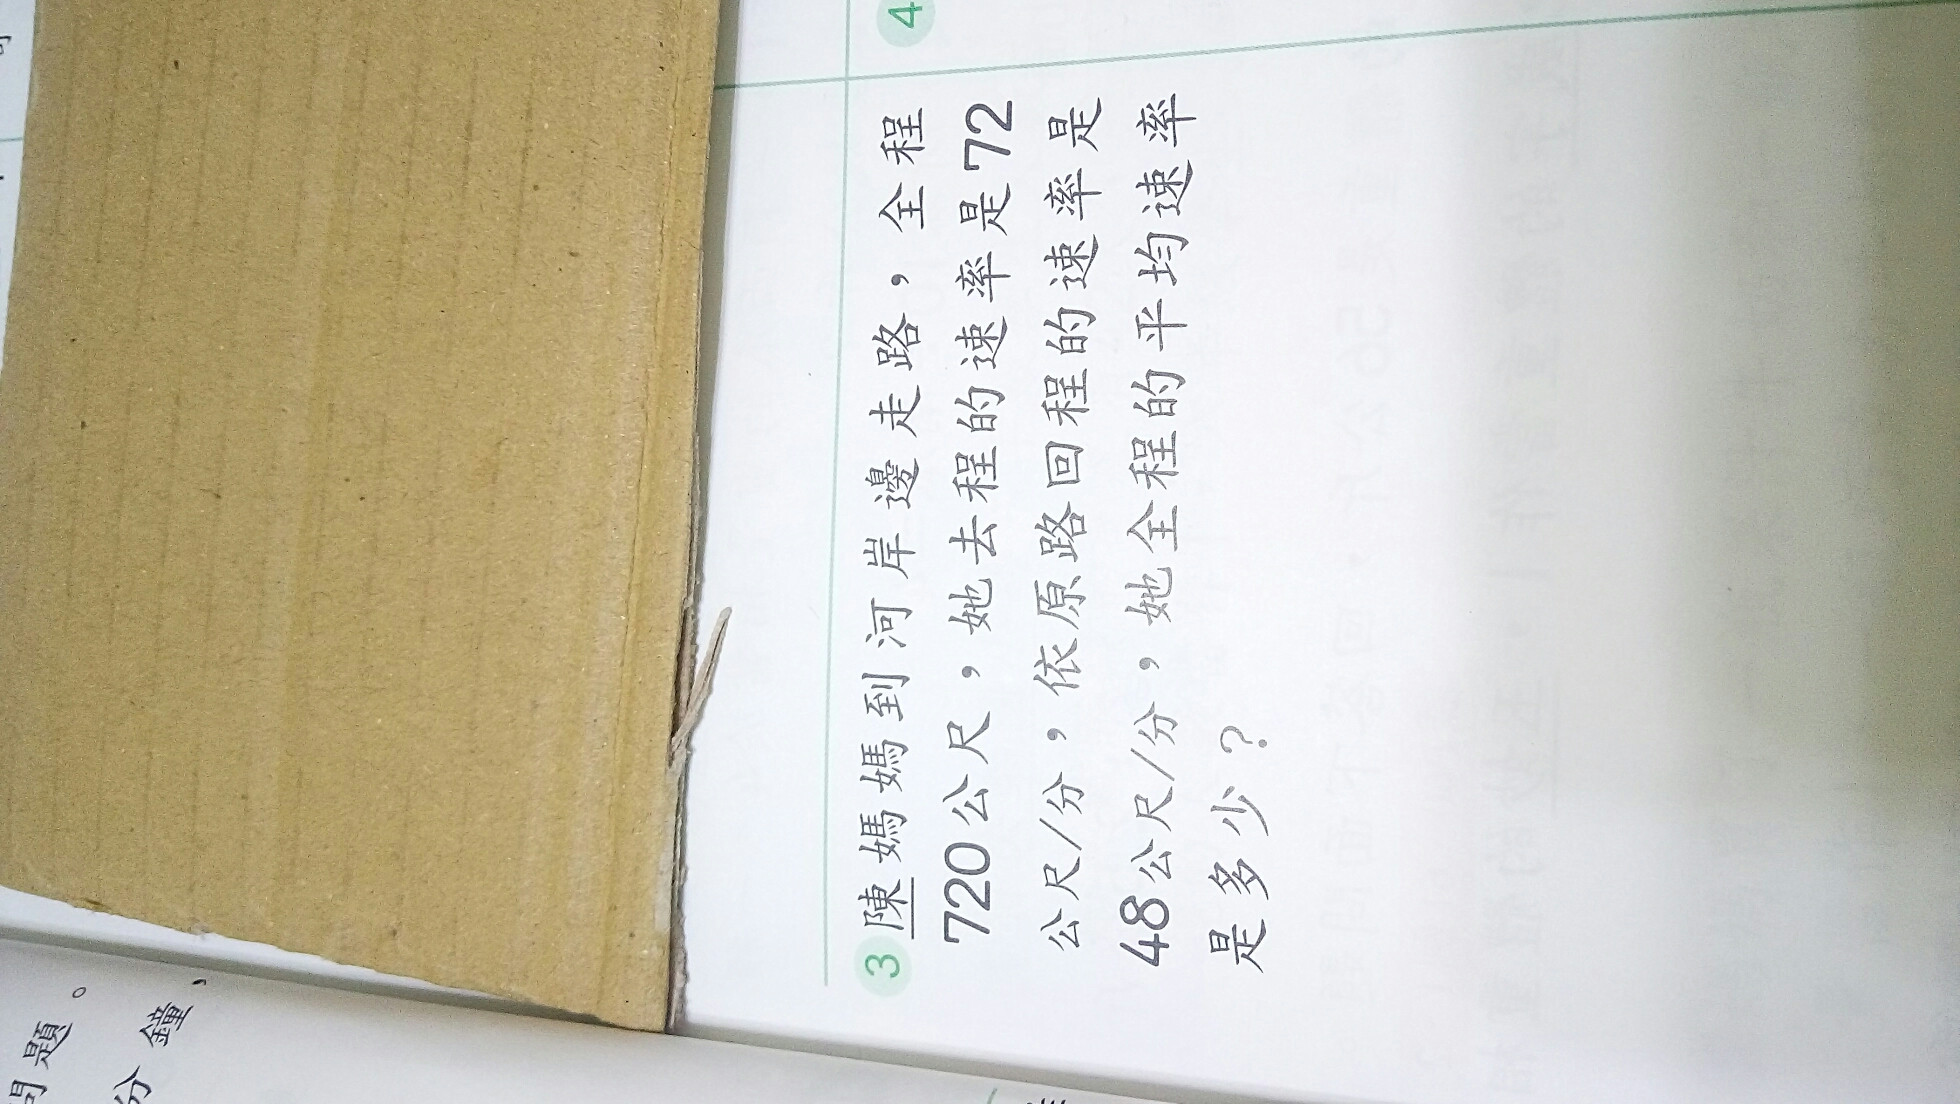 問題。
分鐘，
3 陳媽媽到河岸邊走路，全程
720公尺，她去程的速率是72
公尺/分，依原路回程的速率是
48公尺/分，她全程的平均速率
是多少？
4